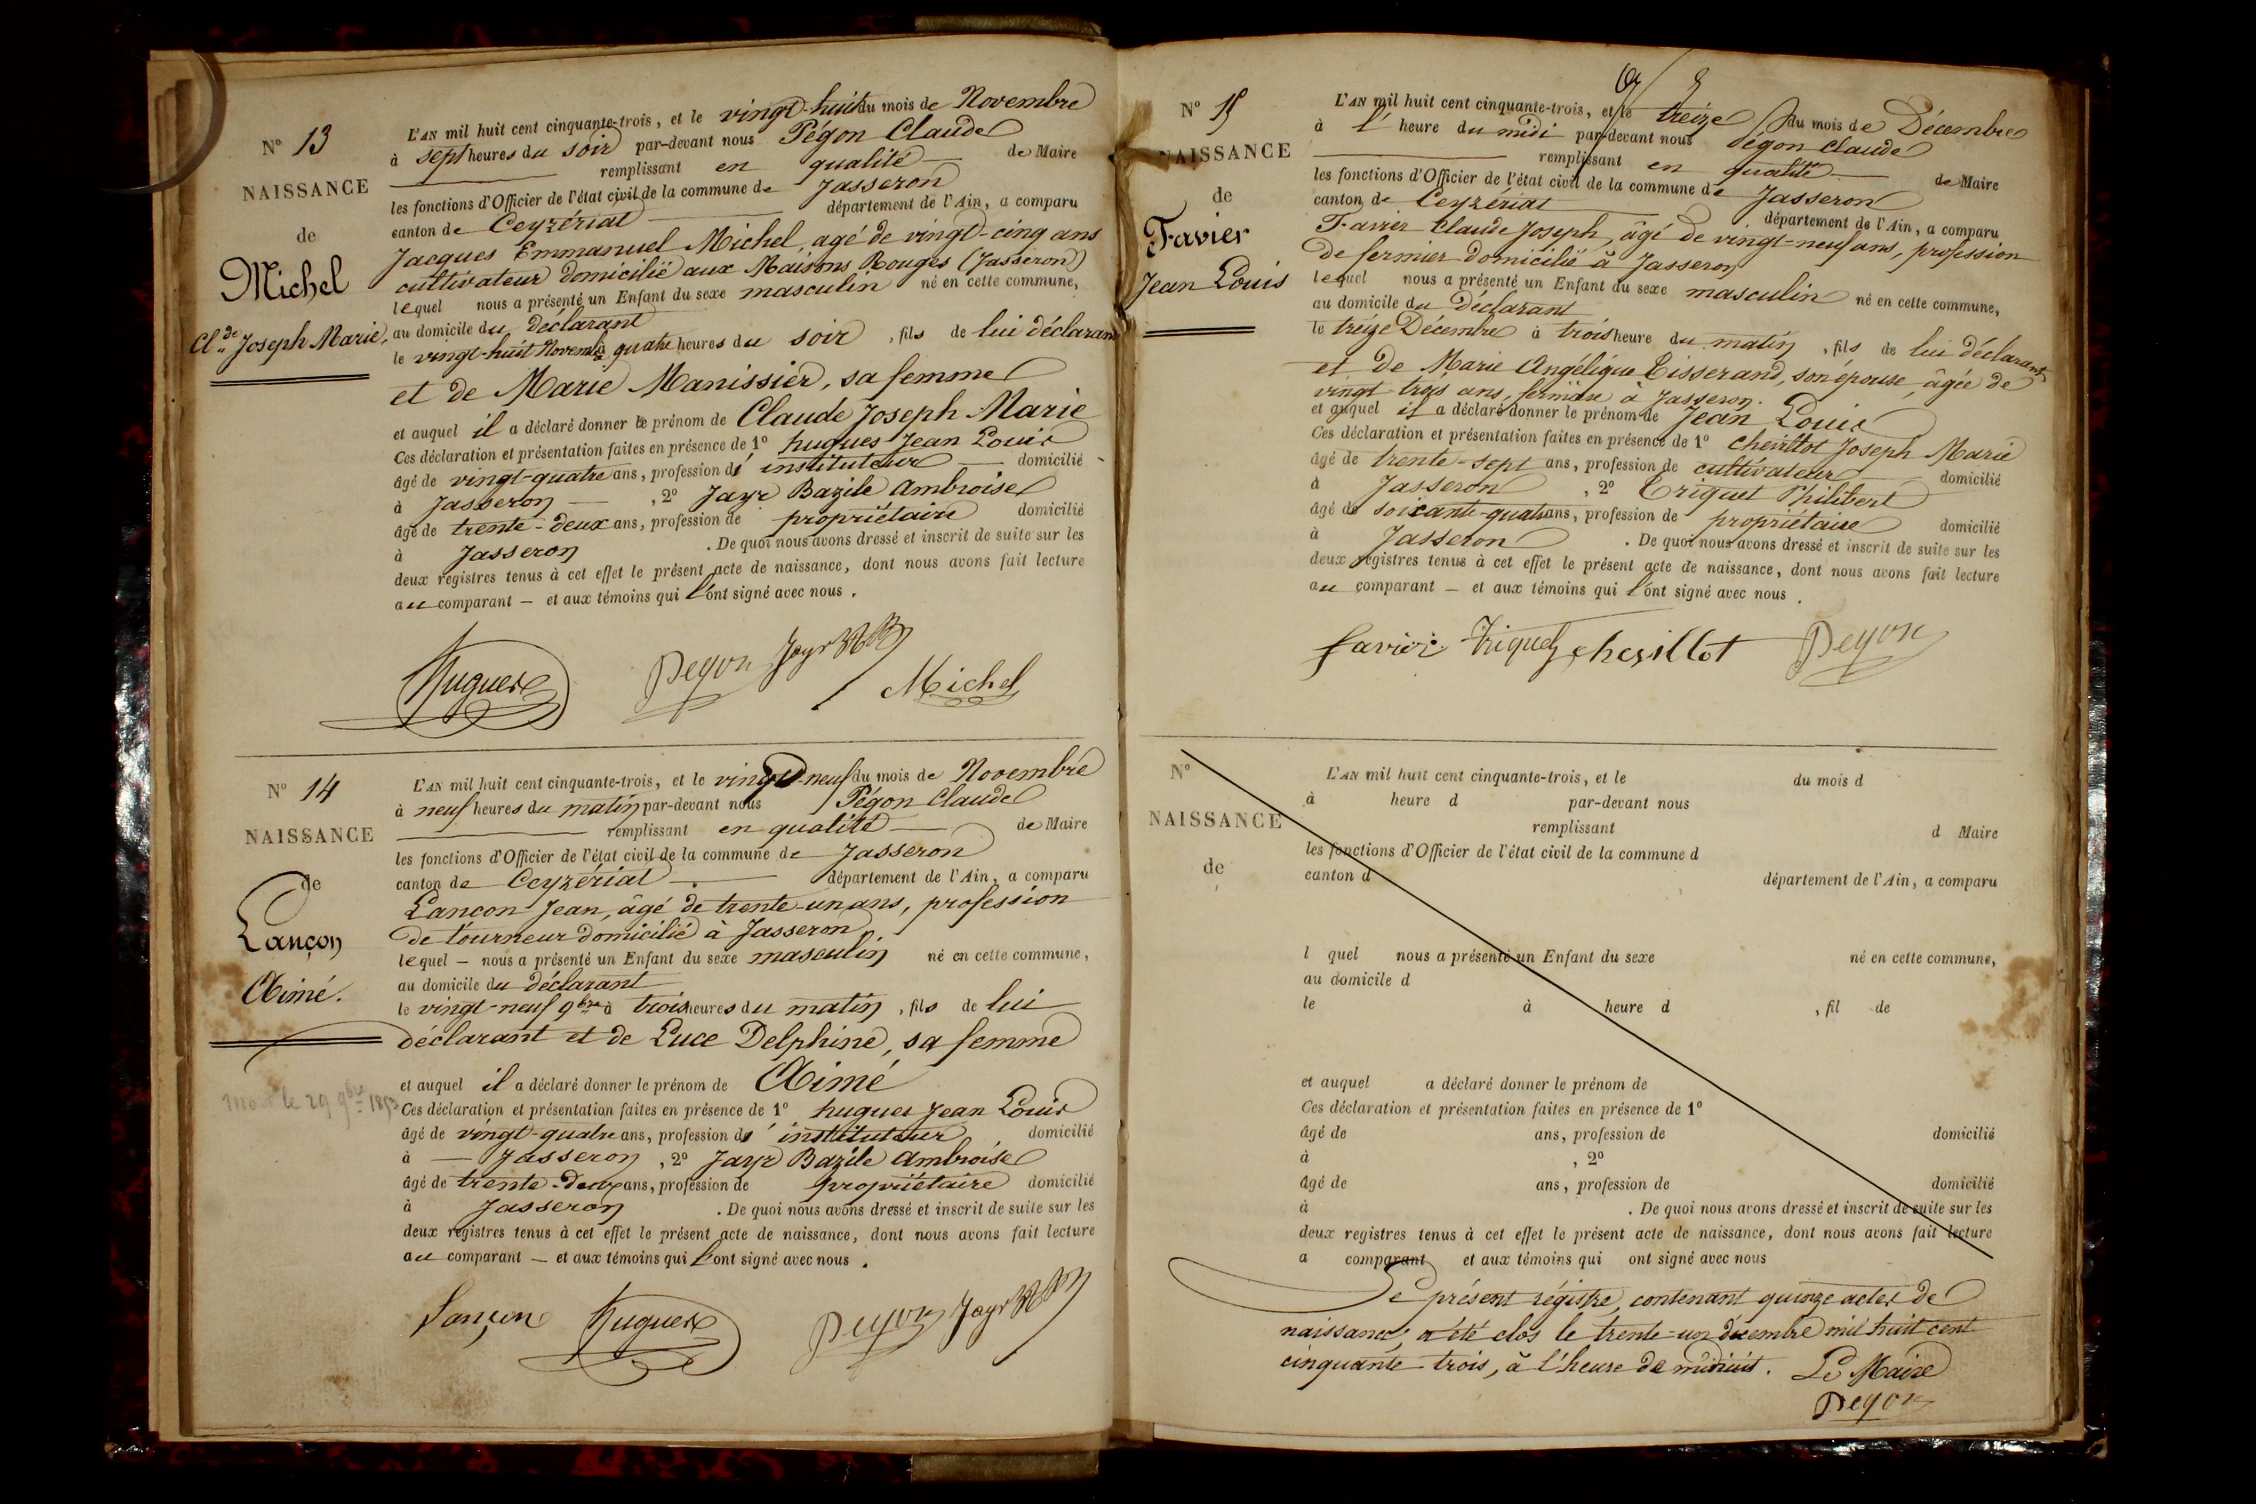 N° 13
NAISSANCE
de
Michel
Cl.de Joseph Marie.
L'AN mil huit cent cinquante-trois, et le vingt-huit du mois de Novembre
à sept heures du soir par-devant nous Pégon Claude
remplissant en qualité de Maire
les fonctions d'Officier de l'état civil de la commune de Jasseron
canton de Ceyzériat département de l'Ain, a comparu
Jacques Emmanuel Michel, agé de vingt-cinq ans
cultivateur domicilié aux Maisons Rouges (Jasseron)
lequel nous a présenté un Enfant du sexe masculin né en cette commune,
au domicile du déclarant
le vingt-huit Novembre à quatre heures du soir, fils de lui déclarant
et de Marie Manissier, sa femme
et auquel il a déclaré donner le prénom de Claude Joseph Marie
Ces déclaration et présentation faites en présence de 1° hugues Jean Louis
âgé de vingt-quatre ans, profession d' instituteur domicilié
à Jasseron, 2° Jayr Bazile Ambroise
âgé de trente-deux ans, profession de propriétaire domicilié
à Jasseron. De quoi nous avons dressé et inscrit de suite sur les
deux registres tenus à cet effet le présent acte de naissance, dont nous avons fait lecture
au comparant — et aux témoins qui l'ont signé avec nous.
Hugues Pegon Jayr Michel
N° 14
NAISSANCE
de
Lançon
Aimé.
mort le 29 9bre 1853
L'AN mil huit cent cinquante-trois, et le vingt-neuf du mois de Novembre
à neuf heures du matin par-devant nous Pégon Claude
remplissant en qualité de Maire
les fonctions d'Officier de l'état civil de la commune de Jasseron
canton de Ceyzériat département de l'Ain, a comparu
Lançon Jean, âgé de trente-un ans, profession
de tourneur domicilié à Jasseron
lequel — nous a présenté un Enfant du sexe masculin né en cette commune,
au domicile du déclarant
le vingt-neuf 9bre à trois heures du matin, fils de lui
déclarant et de Luce Delphine, sa femme
et auquel il a déclaré donner le prénom de Aimé
Ces déclaration et présentation faites en présence de 1° hugues Jean Louis
âgé de vingt-quatre ans, profession d' instituteur domicilié
à — Jasseron, 2° Jayr Bazile Ambroise
âgé de trente-deux ans, profession de propriétaire domicilié
à Jasseron. De quoi nous avons dressé et inscrit de suite sur les
deux registres tenus à cet effet le présent acte de naissance, dont nous avons fait lecture
au comparant — et aux témoins qui l'ont signé avec nous.
Lançon Hugues Pegon Jayr
N° 15
NAISSANCE
de
Favier
Jean Louis
L'AN mil huit cent cinquante-trois, et le treize du mois de Décembre
à l' heure du midi par-devant nous Pégon Claude
remplissant en qualité de Maire
les fonctions d'Officier de l'état civil de la commune de Jasseron
canton de Ceyzériat département de l'Ain, a comparu
Favier Claude Joseph, âgé de vingt-neuf ans, profession
de fermier domicilié à Jasseron
lequel nous a présenté un Enfant du sexe masculin né en cette commune,
au domicile du Déclarant
le treize Décembre à trois heure du matin, fils de lui déclarant
et de Marie Angélique Tisserand, son épouse, âgée de
vingt-trois ans, fermière à Jasseron.
et auquel il a déclaré donner le prénom de Jean Louis
Ces déclaration et présentation faites en présence de 1° Chevillot Joseph Marie
âgé de trente-sept ans, profession de cultivateur domicilié
à Jasseron, 2° Triquet Philibert
âgé de soixante-quatre ans, profession de propriétaire domicilié
à Jasseron. De quoi nous avons dressé et inscrit de suite sur les
deux registres tenus à cet effet le présent acte de naissance, dont nous avons fait lecture
au comparant — et aux témoins qui l'ont signé avec nous.
favier Triquet chevillot Pegon
N°
NAISSANCE
de
L'AN mil huit cent cinquante-trois, et le du mois d
à heure d par-devant nous
remplissant d Maire
les fonctions d'Officier de l'état civil de la commune d
canton d département de l'Ain, a comparu
l quel nous a présenté un Enfant du sexe né en cette commune,
au domicile d
le à heure d , fil de
et auquel a déclaré donner le prénom de
Ces déclaration et présentation faites en présence de 1°
âgé de ans, profession de domicilié
à , 2°
âgé de ans, profession de domicilié
à . De quoi nous avons dressé et inscrit de suite sur les
deux registres tenus à cet effet le présent acte de naissance, dont nous avons fait lecture
a comparant et aux témoins qui ont signé avec nous
Le présent régistre, contenant quinze actes de
naissance, a été clos le trente-un décembre mil huit cent
cinquante-trois, à l'heure de minuit. Le Maire
Pegon